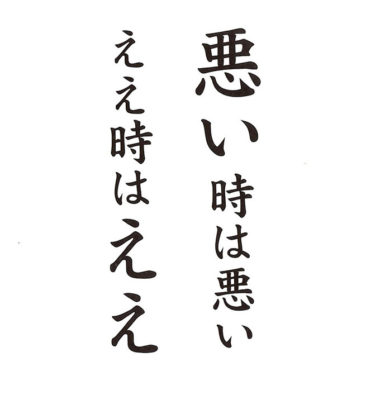 悪い時は悪い
ええ時はええ